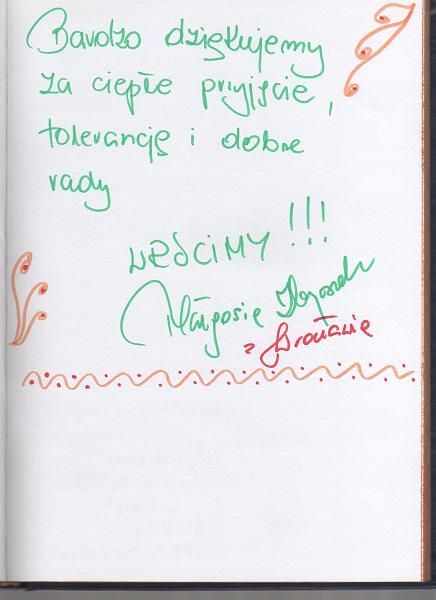 Bardzo dziękujemy
za ciepłe przyjęcie,
tolerancję i dobre
rady
WRÓCIMY !!!
Małgosia
z